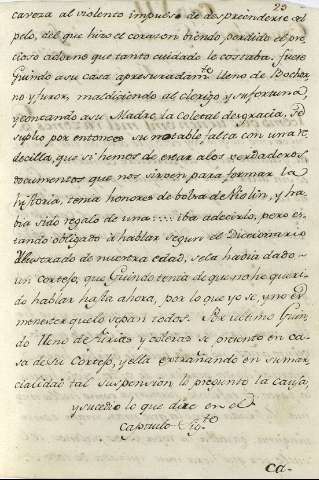 25
cavera al violento impulso de despreenderse el
pelo, del que hizo el corason viendo, perdido el pre-
cioso adorno que tanto cuidado le costaba, fuese
Guindo a su casa apresuradam.te lleno de Bochor-
no y furor, maldiciendo al clerigo y su fortuna,
y contando a su Madre la Coletal desgracia, se
suplio por entonces su notable falta con una re-
decilla, que si hemos de estar a los verdaderos
documentos que nos sirven para formar la
historia, tenia honores de bolsa de Violin, y ha-
bia sido regalo de una.... iba a decirlo, pero es-
tando obligado a hablar segun el Diccionario
Ilustrado de nuestra edad, se la habia dado
un Cortejo, que Guindo tenia de que no he queri-
do hablar hasta ahora, por lo que yo se, y no es
menester que lo sepan todos. Por ultimo Guin-
do lleno de furias y coleras se presento en ca-
sa de su Cortejo, y ella extrañando en su mar-
cialidad tal suspension le pregunto la causa,
y sucedio lo que dire en el
Capitulo Sig.te
Ca-